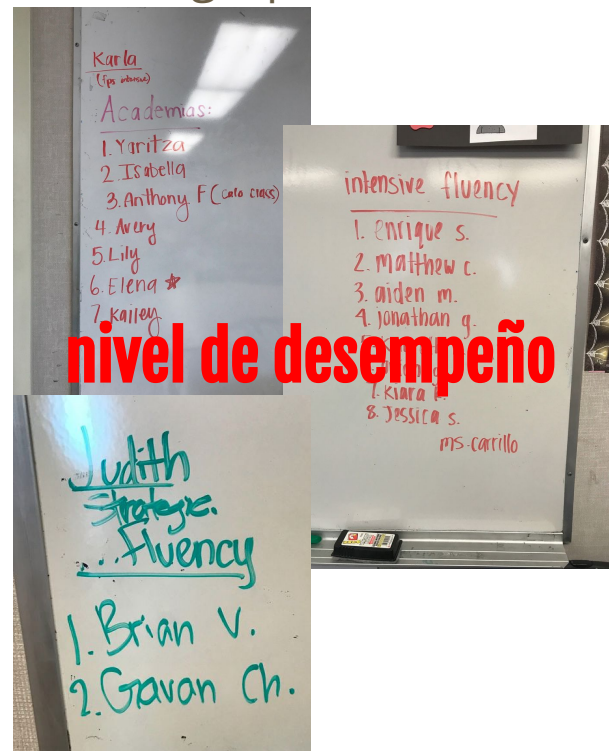 Karla
Academias:
1. Yaritza
2. Isabella
3. Anthony F (calo class)
4. Avery
5. Lily
6. Elena
7. Kailey
intensive fluency
1. enrique s.
2. matthew c.
3. aiden m.
4. jonathan g.
7. Kiara
8. Jessica s.
ms. carrillo
nivel de desempeño
Judith
Strategic.
...Fluency
1. Brian V.
2. Gavan Ch.